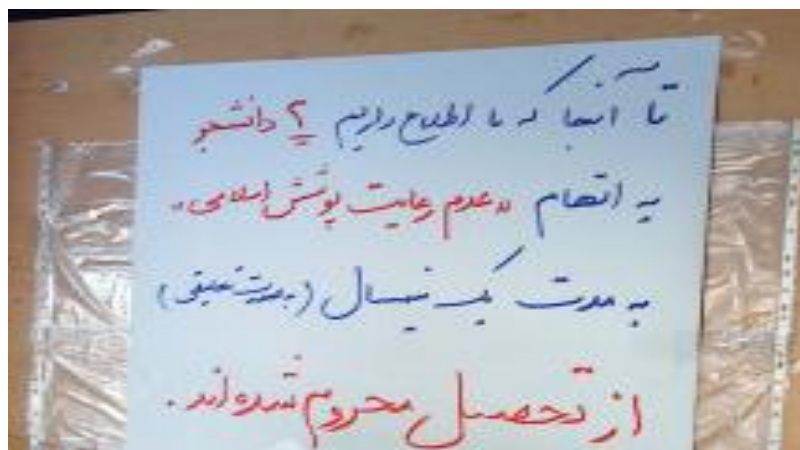 تا آنجا که ما اطلاع داریم ۶ دانشجو
به اتهام «عدم رعایت پوشش اسلامی»
به مدت یک نیمسال (بصورت تعلیقی)
از تحصیل محروم شده‌اند.